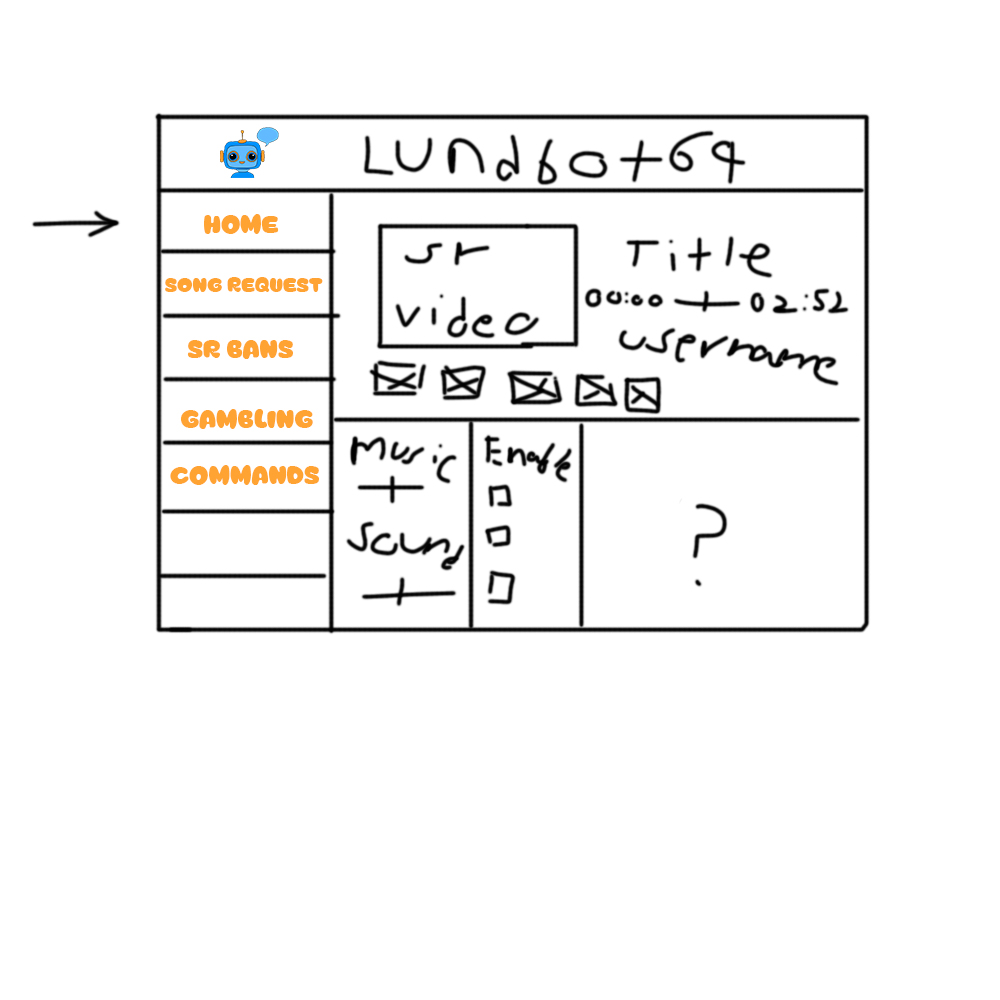 Lundbot64
HOME
SONG REQUEST
SR BANS
GAMBLING
COMMANDS
sr
video
Title
00:00 02:52
username
Music
Sound
Enable
?